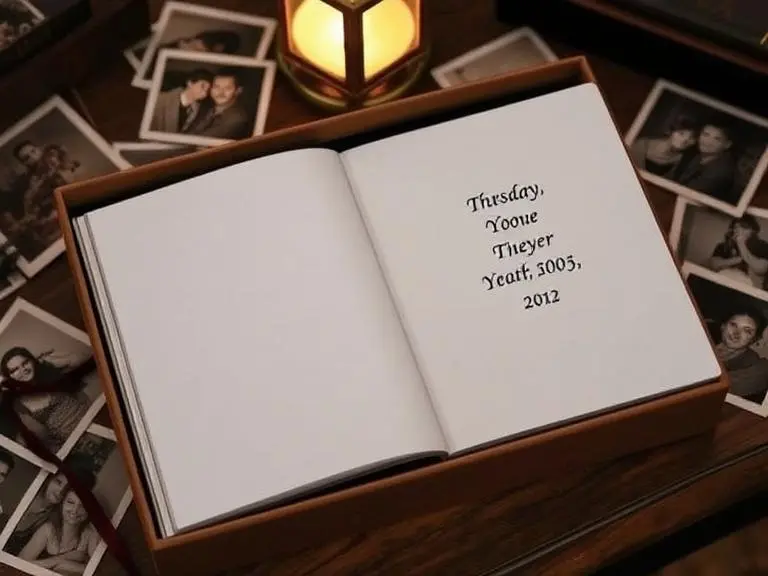 Thrsday,
Yooue
Theyer
Yeatt, 3003,
2012